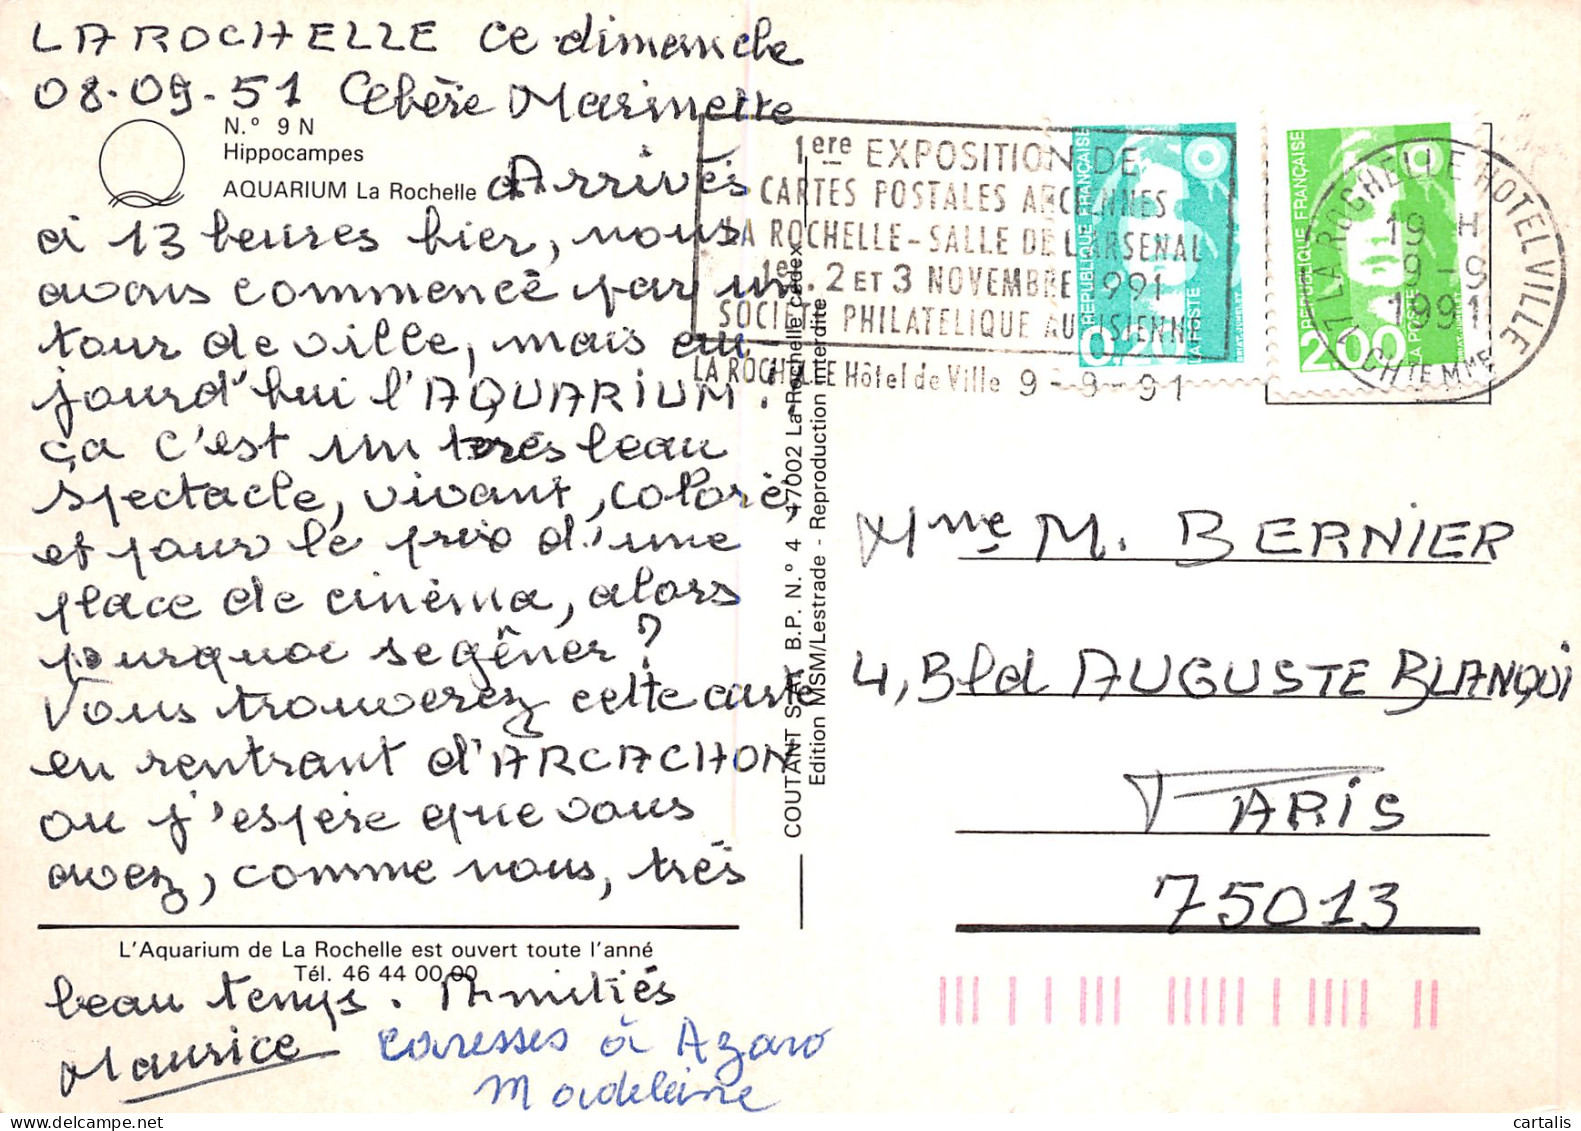 LA ROCHELLE ce dimanche
08.09.91 Chère Marinette
N.º 9 N
Hippocampes
AQUARIUM La Rochelle
Arrivés
à 13 heures hier, nous
avons commencé par un
tour de ville, mais au
jourd'hui l'AQUARIUM!
ça c'est un très beau
spectacle, vivant, coloré
et pour le prix d'une
place de cinéma, alors
pourquoi se gêner?
Vous trouverez cette carte
en rentrant d'ARCACHON
ou j'espère que vous
avez, comme nous, très
L'Aquarium de La Rochelle est ouvert toute l'anné
Tél. 46 44 00 00
beau temps. Amitiés
Maurice
caresses à Azaro
Madeleine
COUTANT S.A. B.P. N.º 4 17002 La Rochelle cedex
Edition MSM/Lestrade - Reproduction interdite
1ere EXPOSITION DE
CARTES POSTALES ANCIENNES
LA ROCHELLE - SALLE DE L'ARSENAL
1er. 2 ET 3 NOVEMBRE 1991
SOCIETE PHILATELIQUE AUNISIENNE
LA ROCHELLE Hôtel de Ville 9-9-91
REPUBLIQUE FRANÇAISE
0,20
LA POSTE
REPUBLIQUE FRANÇAISE
2,00
LA POSTE
17 LA ROCHELLE HOTEL VILLE
19 H
9-9
1991
CHTE MME
Mme M. BERNIER
4, Bld AUGUSTE BLANQUI
PARIS
75013
cartalis